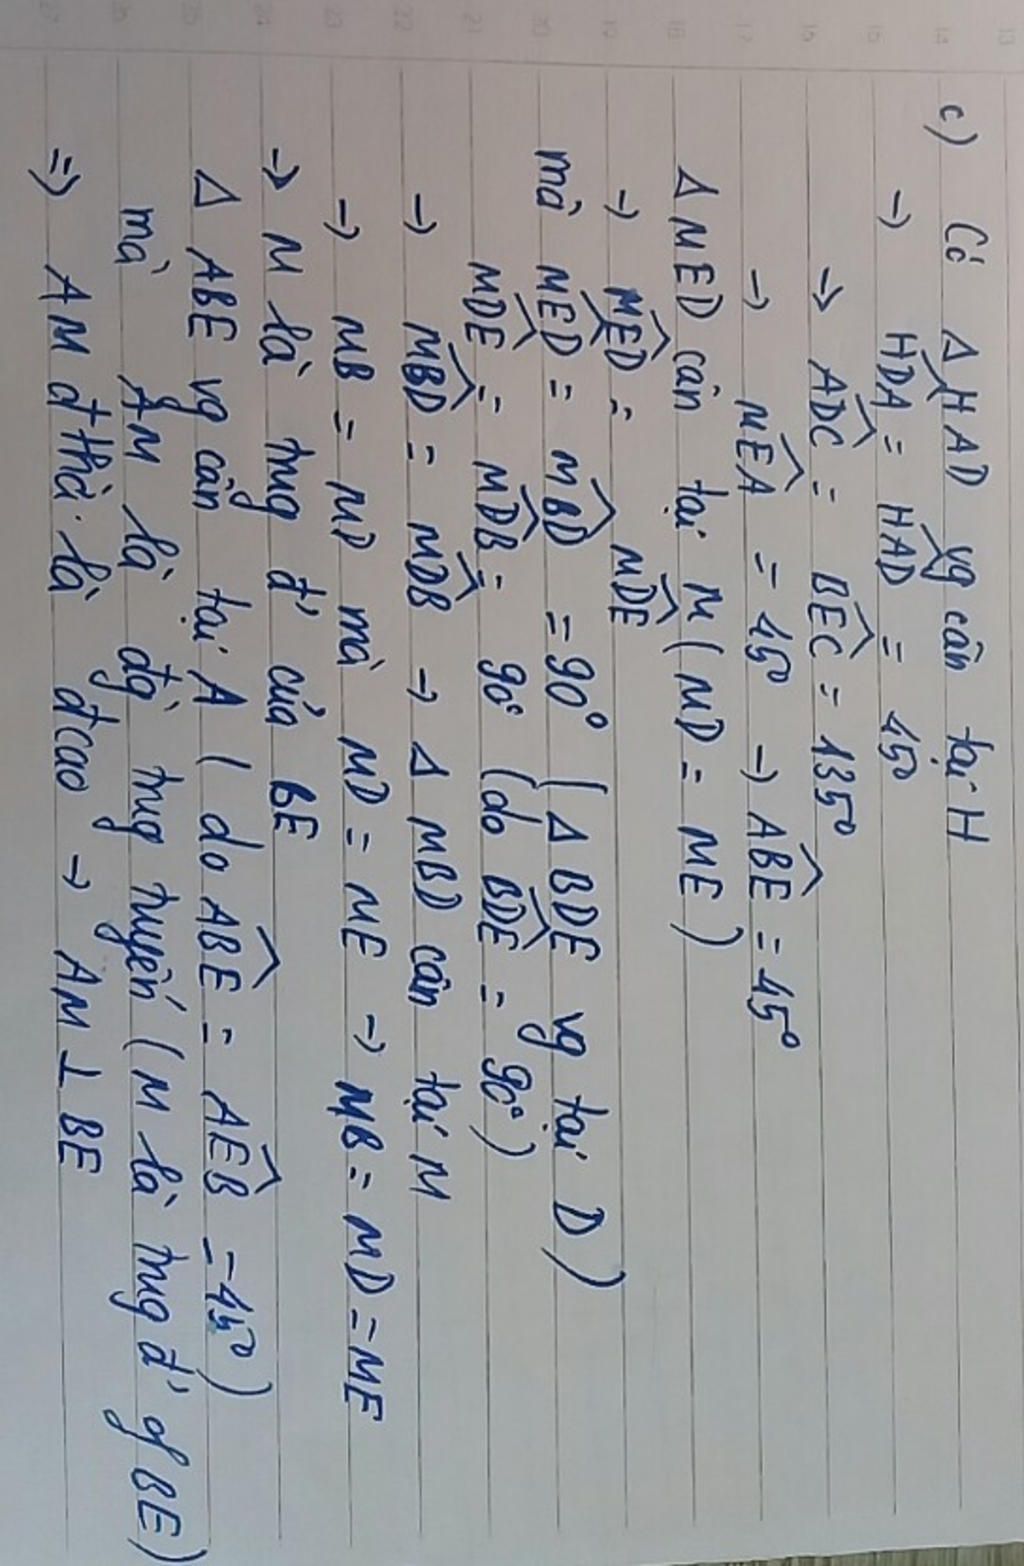 c) Có Δ HAD vg cân tại H
→ \widehat{HDA} = \widehat{HAD} = 45°
→ \widehat{ADC} = \widehat{BEC} = 135°
→ \widehat{MEA} = 45° → \widehat{ABE} = 45°
Δ MED cân tại M (MD = ME)
→ \widehat{MED} = \widehat{MDE}
mà \widehat{MED} = \widehat{MBD} = 90° (Δ BDE vg tại D)
\widehat{MDE} = \widehat{MDB} = 90° (do \widehat{BDE} = 90°)
→ \widehat{MBD} = \widehat{MDB} → Δ MBD cân tại M
→ MB = MD mà MD = ME → MB = MD = ME
→ M là trug đ' của BE
Δ ABE vg cân tại A (do \widehat{ABE} = \widehat{AEB} = 45°)
mà AM là đg trug tuyến (M là trug đ' of BE)
⇒ AM đ thời là đ cao → AM ⊥ BE
13 14 15 16 17 18 19 20 21 22 23 24 25 26 27